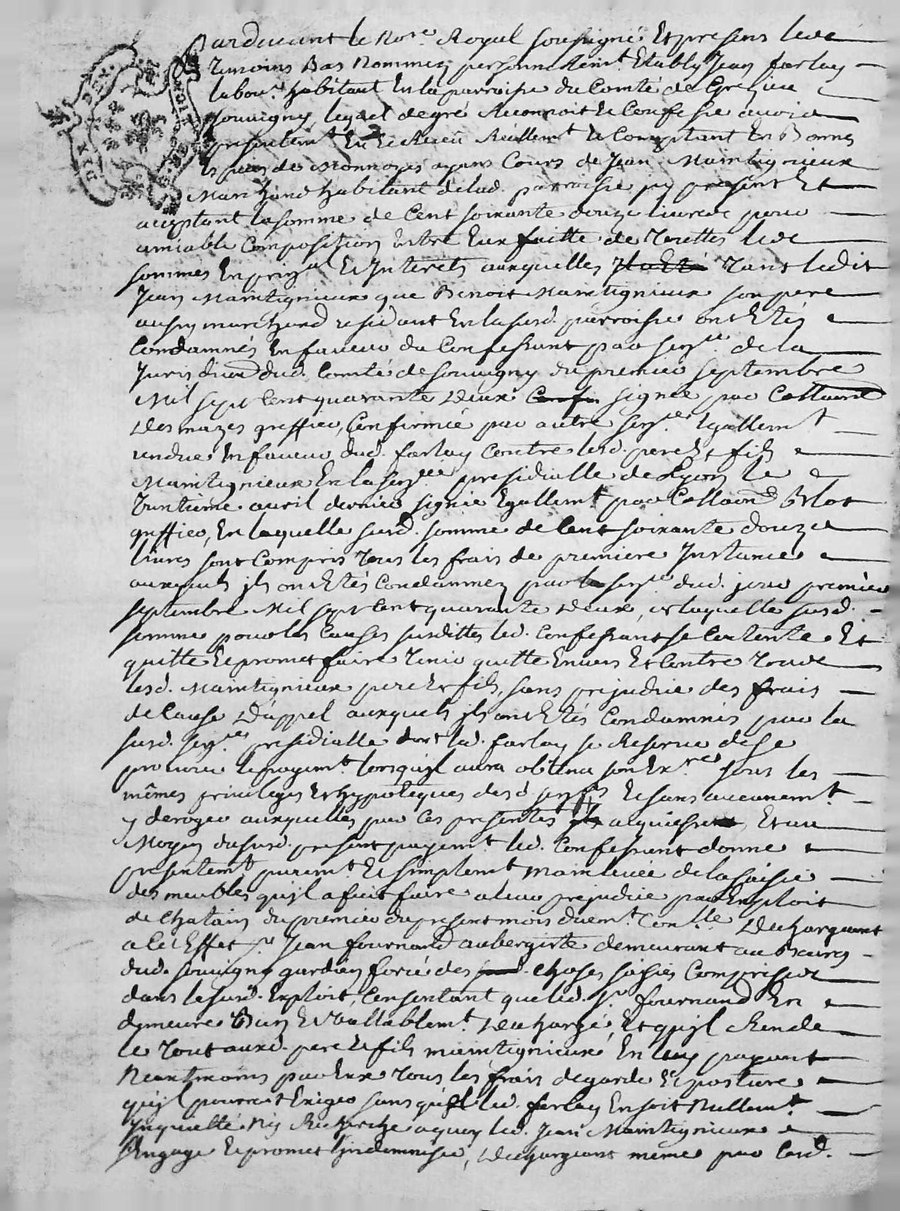 Pardevant le No.re Royal soussigné Et presens les
temoins Bas Nommez personnellem.t Etably Jean farlay
labour. habitant En la parroisse du Comté de
Souvigny lequel degré Reconnoit Et Confesse avoir
presentem.t Et Receu Reellem.t Et Comptant En Bonnes
Especes de Monnoyes ayant Cours de Jean Maintignieux
Marchand habitant de lad. parroisse jcy present Et
acceptant la somme de Cent soixante douze livres pour
amiable Composition Entre Eux faitte de touttes les
sommes En prin.al Et Interets auxquelles tant ledit
Jean Maintignieux que Benoit Maintignieux son pere
aussy marchand residant En lasusd. parroisse ont Etés
Condamnés En faveur du Confessant par sen.ce de la
Jurisdiction dud. Comté de Souvigny du premier septembre
Mil sept Cent quarante deux signée par Collaon
Desmazes greffier, Confirmée par autre sen.ce Egallem.t
rendue En faveur dud. farlay Contre lesd. pere Et fils
Maintignieux En la sen.ee presidialle de Lyon le
trentieme avril dernier signée Egallem.t par Collaon
greffier, En laquelle susd. somme de Cent soixante douze
livres sont Compris tous les frais de premiere Instance
auxquels jls ont Etés Condamnez par la sen.ce dud. jour premier
septembre Mil sept Cent quarante deux, de laquelle susd.
somme pour les Causes susdittes led. Confessant se Contente Et
quitte Et promet faire tenir quitte Envers Et Contre tous
lesd. Maintignieux pere Et fils, sans prejudice des frais
de Cause D'appel auxquels jls ont Etés Condamnés par la
susd. sen.ee presidialle dont led. farlay se Reserve de se
procurer le payem.t lorsqu'jl aura obtenu son Ex.re sous les
mêmes privileges Et hypoteques desd. sen.ces Et sans aucunem.t
y deroger auxquelles par ces presentes Et au
Moyen du susd. present payem.t led. Confessant donne
presentem.t purem.t Et simplem.t mainlevée de la saisie
des meubles qu'jl a fait faire a leur prejudice par Exploit
de Chatain du premier du present mois duem.t Con.llé Dechargeant
a Cet Effet s.r Jean fournand aubergiste demeurant au Bourg
dud. Souvigny gardien forcé des choses saisies Comprises
dans lesusd. Exploit, Consentant que led. s.r fournand En
demeure Bien Et Vallablem.t Dechargé, Et qu'jl Rende
le tout auxd. pere Et fils maintignieux En luy payant
Neantmoins par Eux tous les frais de garde Et posture
qu'jl pourroit Exiger sans que led. farlay En soit Nullem.t
Inquietté Ny Recherché a quoy led. Jean Maintignieux
s'Engage Et promet Lindemniser, Dechargeant même par lesd.